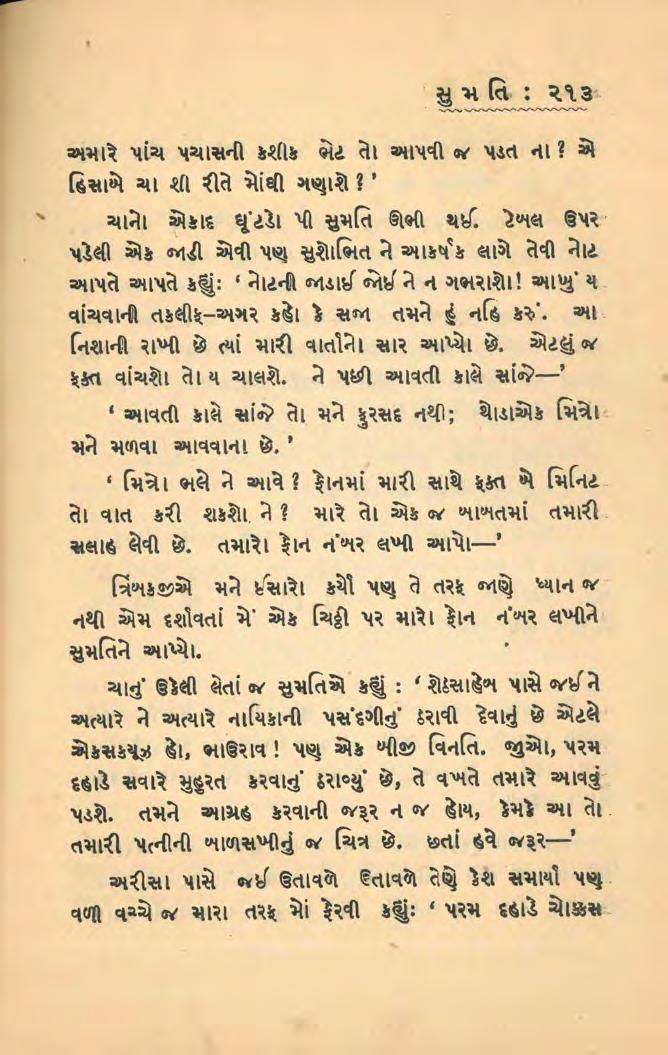 સુ મ તિ : ૨૧૩
અમારે પાંચ પચાસની કશીક ભેટ તો આપવી જ પડત ના ? એ
હિસાબે ચા શી રીતે મોંઘી ગણાશે ? ’
ચાનો એકાદ ઘૂંટડો પી સુમતિ ઊભી થઈ. ટેબલ ઉપર
પડેલી એક જાડી એવી પણ સુશોભિત ને આકર્ષક લાગે તેવી નોટ
આપતે આપતે કહ્યું: ‘ નોટની જાડાઈ જોઈ ને ન ગભરાશો! આખું ય
વાંચવાની તકલીફ–અગર કહો કે સજા તમને હું નહિ કરું. આ
નિશાની રાખી છે ત્યાં મારી વાર્તાનો સાર આપ્યો છે. એટલું જ
ફક્ત વાંચશો તો ય ચાલશે. ને પછી આવતી કાલે સાંજે—’
‘ આવતી કાલે સાંજે તો મને ફુરસદ નથી; થોડાએક મિત્રો
મને મળવા આવવાના છે. ’
‘ મિત્રો ભલે ને આવે ? ફોનમાં મારી સાથે ફક્ત બે મિનિટ
તો વાત કરી શકશો ને ? મારે તો એક જ બાબતમાં તમારી
સલાહ લેવી છે. તમારો ફોન નંબર લખી આપો—’
ત્રિંબકજીએ મને ઈસારો કર્યો પણ તે તરફ જાણે ધ્યાન જ
નથી એમ દર્શાવતાં મેં એક ચિઠ્ઠી પર મારો ફોન નંબર લખીને
સુમતિને આપ્યો.
ચાનું ઉકેલી લેતાં જ સુમતિએ કહ્યું : ‘ શેઠસાહેબ પાસે જઈ ને
અત્યારે ને અત્યારે નાયિકાની પસંદગીનું ઠરાવી દેવાનું છે એટલે
એકસકયૂઝ હો, ભાઉરાવ ! પણ એક બીજી વિનતિ. જુઓ, પરમ
દહાડે સવારે મુહૂરત કરવાનું ઠરાવ્યું છે, તે વખતે તમારે આવવું
પડશે. તમને આગ્રહ કરવાની જરૂર ન જ હોય, કેમકે આ તો
તમારી પત્નીની બાળસખીનું જ ચિત્ર છે. છતાં હવે જરૂર—’
અરીસા પાસે જઈ ઉતાવળે ઉતાવળે તેણે કેશ સમાર્યા પણ
વળી વચ્ચે જ મારા તરફ મોં ફેરવી કહ્યું: ‘ પરમ દહાડે ચોક્કસ